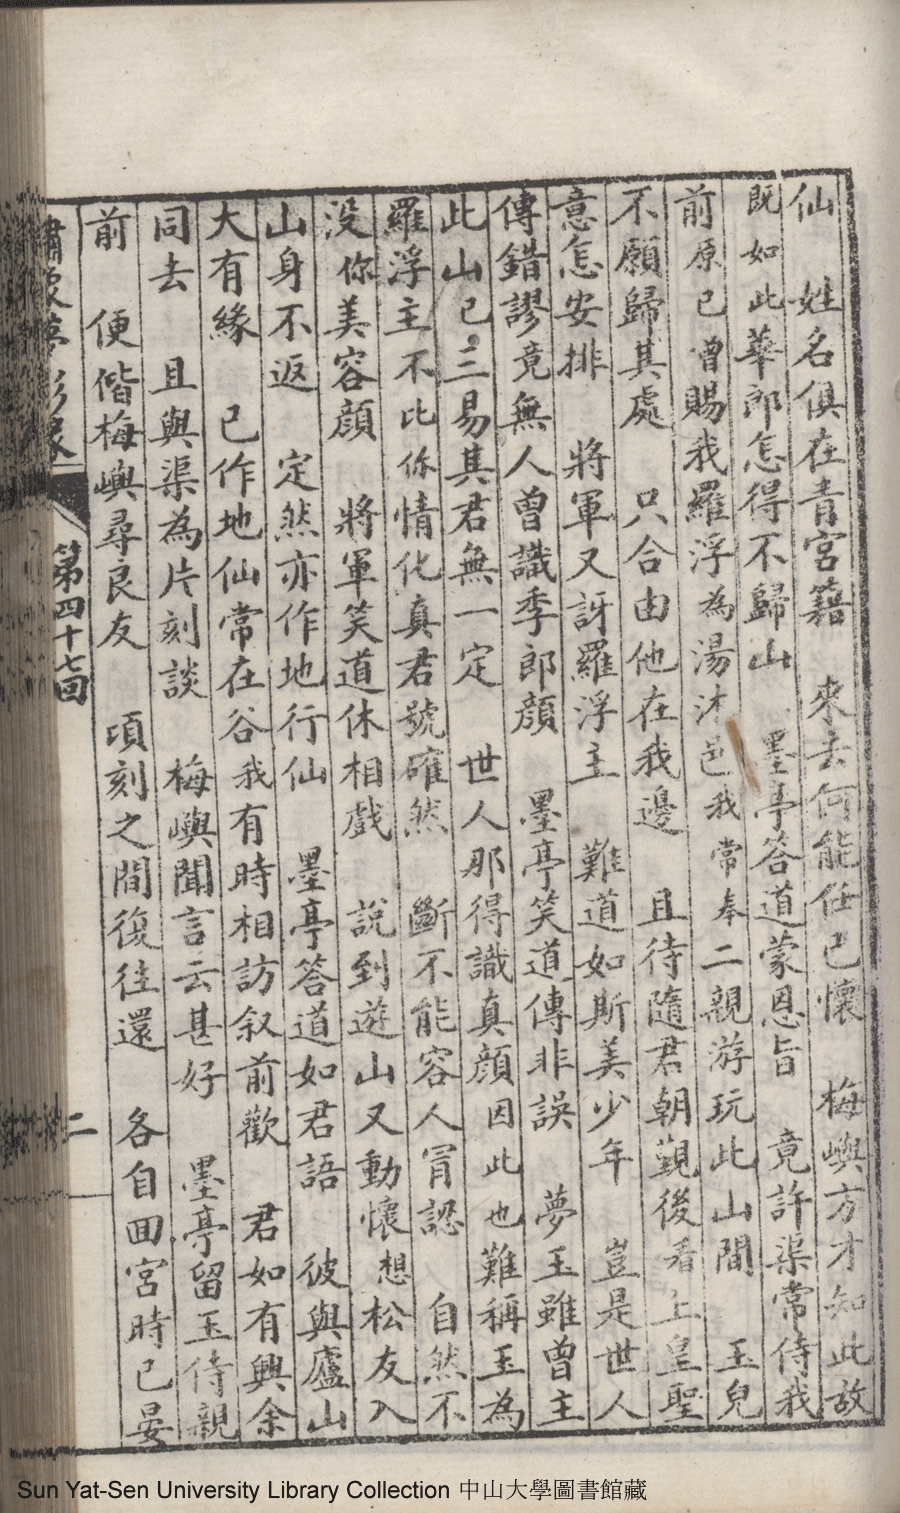 仙　姓名俱在青宮籍　來去何能任已懷　梅嶼方才知此故
既如此華郎怎得不歸山　墨亭答道蒙恩旨　竟許渠常侍我
前原已曾賜我羅浮為湯沐邑我常奉二親游玩此山間　玉兒
不願歸其處　只合由他在我邊　且待隨君朝覲後看上皇聖
意怎安排　將軍又訝羅浮主　難道如斯美少年　豈是世人
傳錯謬竟無人曾識季郎顔　墨亭笑道傳非誤　夢玉雖曾主
此山已三易其君無一定　世人那得識真顔因此也難稱玉為
羅浮主不比你情化真君號確然　斷不能容人冐認　自然不
没你美容顔　將軍笑道休相戲　說到遊山又動懷想松友入
山身不返　定然亦作地行仙　墨亭答道如君語　彼與廬山
大有緣　已作地仙常在谷我有時相訪叙前歡　君如有興余
同去　且與渠為片刻談　梅嶼聞言云甚好　墨亭留玉侍親
前　便偕梅嶼尋良友　項刻之間復往還　各自囬宮時已晏
第四十七回
二
Sun Yat-Sen University Library Collection 中山大學圖書館藏